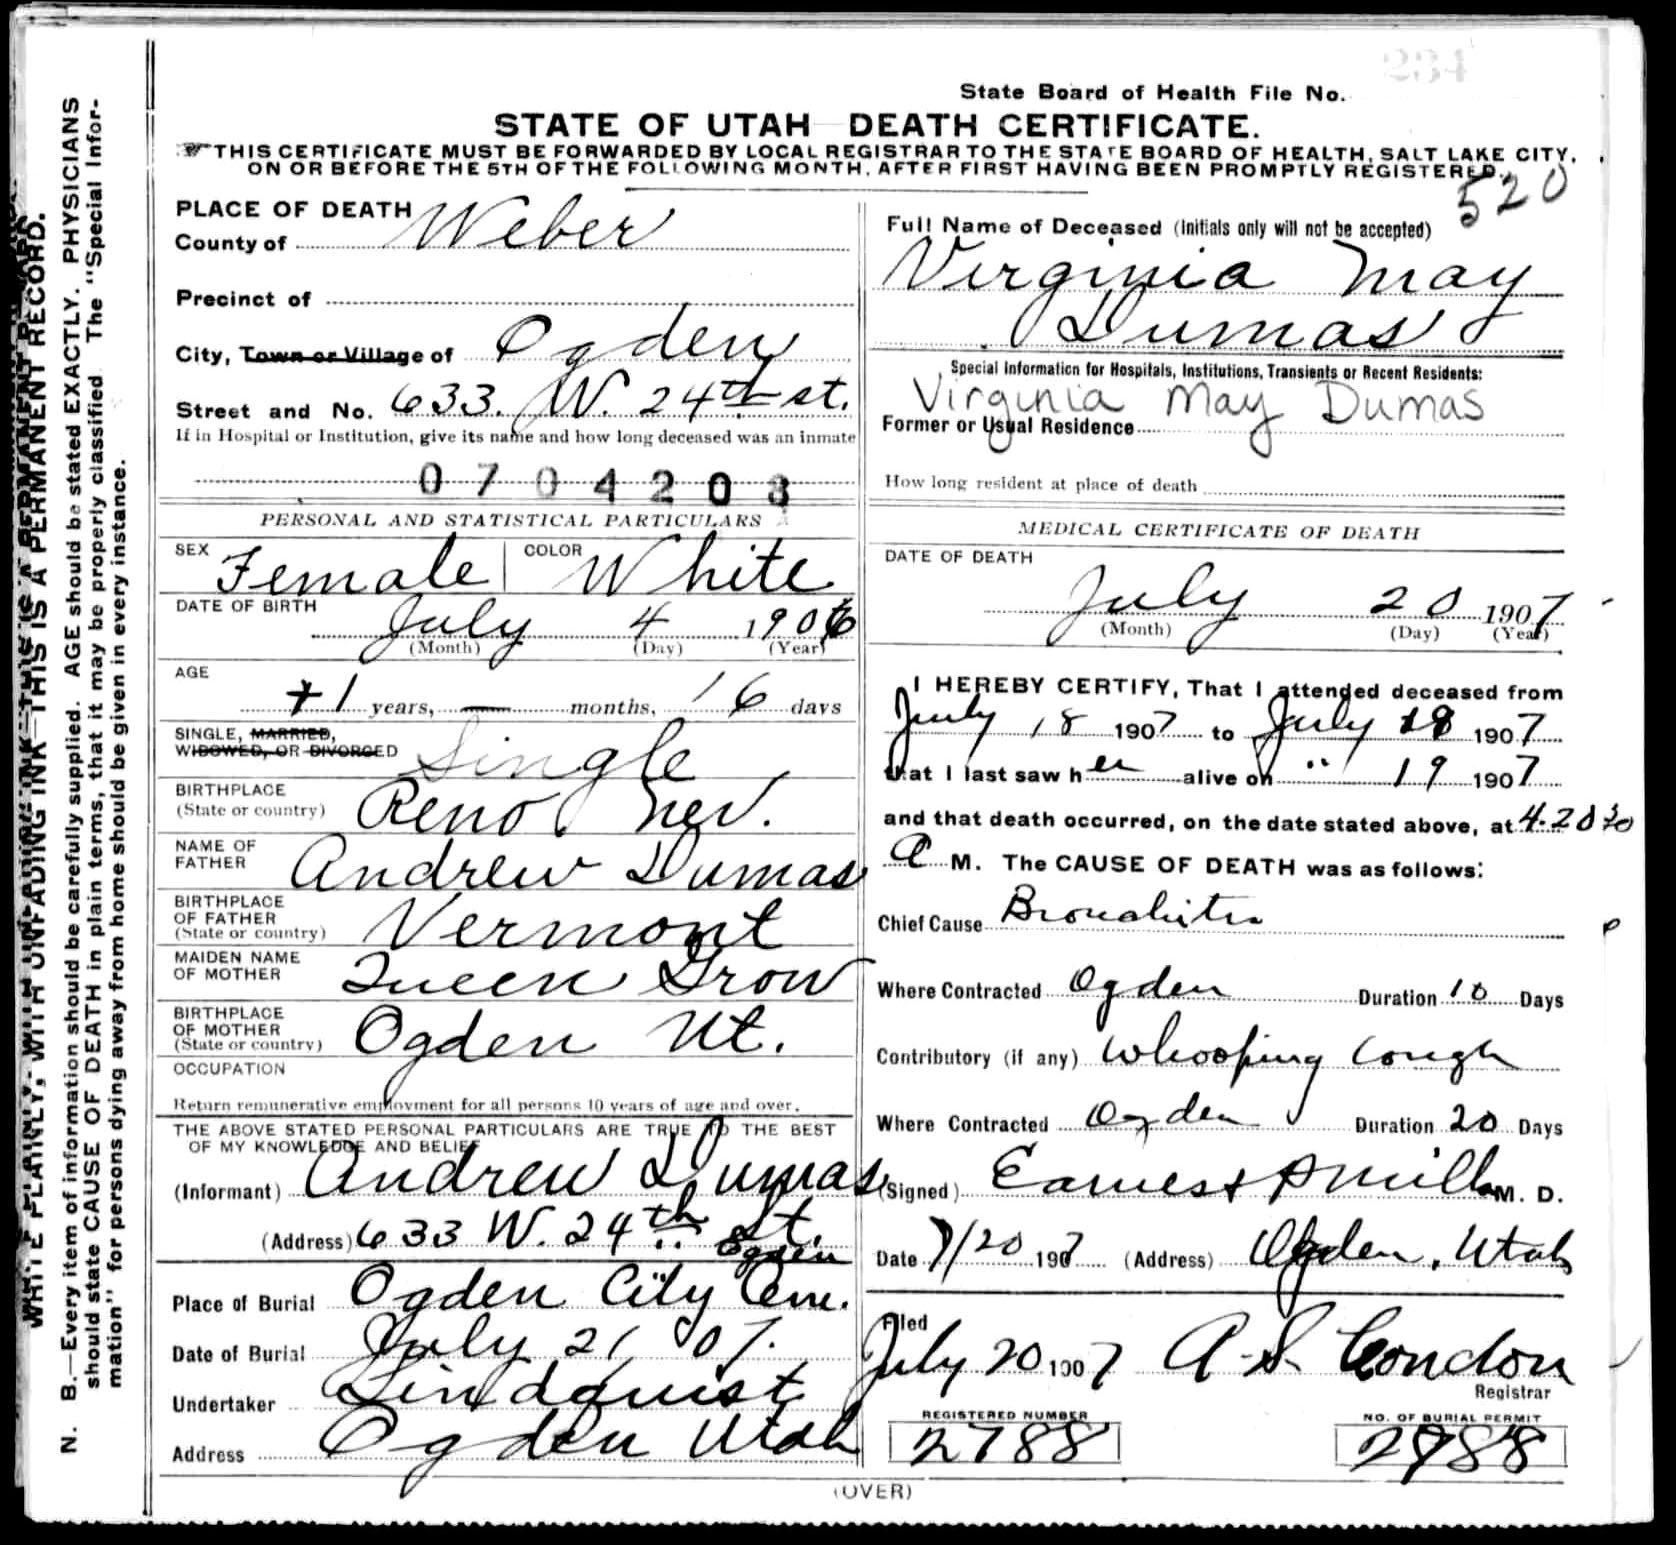 234
State Board of Health File No.
STATE OF UTAH DEATH CERTIFICATE.
THIS CERTIFICATE MUST BE FORWARDED BY LOCAL REGISTRAR TO THE STATE BOARD OF HEALTH, SALT LAKE CITY,
ON OR BEFORE THE 5TH OF THE FOLLOWING MONTH, AFTER FIRST HAVING BEEN PROMPTLY REGISTERED.
520
WRITE PLAINLY, WITH UNFADING INK—THIS IS A PERMANENT RECORD.
N. B.—Every item of information should be carefully supplied. AGE should be stated EXACTLY. PHYSICIANS
should state CAUSE OF DEATH in plain terms, that it may be properly classified. The "Special Infor-
mation" for persons dying away from home should be given in every instance.
PLACE OF DEATH
County of Weber
Precinct of
City, Town or Village of Ogden
Street and No. 633. W. 24th st.
If in Hospital or Institution, give its name and how long deceased was an inmate
0704203
PERSONAL AND STATISTICAL PARTICULARS
SEX Female COLOR White
DATE OF BIRTH
July 4 1906
(Month) (Day) (Year)
AGE
1 years, — months, 16 days
SINGLE, MARRIED,
WIDOWED, OR DIVORCED Single
BIRTHPLACE
(State or country) Reno Nev.
NAME OF
FATHER Andrew Dumas
BIRTHPLACE
OF FATHER
(State or country) Vermont
MAIDEN NAME
OF MOTHER Queen Grow
BIRTHPLACE
OF MOTHER
(State or country) Ogden Ut.
OCCUPATION
Return remunerative employment for all persons 10 years of age and over.
THE ABOVE STATED PERSONAL PARTICULARS ARE TRUE TO THE BEST
OF MY KNOWLEDGE AND BELIEF
(Informant) Andrew Dumas
(Address) 633 W. 24th St.
Ogden
Place of Burial Ogden City Cem.
Date of Burial July 21 07.
Undertaker Lindquist
Address Ogden Utah
Full Name of Deceased (Initials only will not be accepted)
Virginia May
Dumas
Special Information for Hospitals, Institutions, Transients or Recent Residents:
Virginia May Dumas
Former or Usual Residence
How long resident at place of death
MEDICAL CERTIFICATE OF DEATH
DATE OF DEATH
July 20 1907
(Month) (Day) (Year)
I HEREBY CERTIFY, That I attended deceased from
July 18 1907 to July 19 1907
that I last saw her alive on " 19 1907
and that death occurred, on the date stated above, at 4.20
A M. The CAUSE OF DEATH was as follows:
Chief Cause Bronchitis
Where Contracted Ogden Duration 10 Days
Contributory (if any) Whooping Cough
Where Contracted Ogden Duration 20 Days
(Signed) Earnest A Mills M. D.
Date 7/20 1907 (Address) Ogden, Utah
Filed
July 20 1907 A. S. Condon
Registrar
REGISTERED NUMBER
2788
NO. OF BURIAL PERMIT
2788
(OVER)